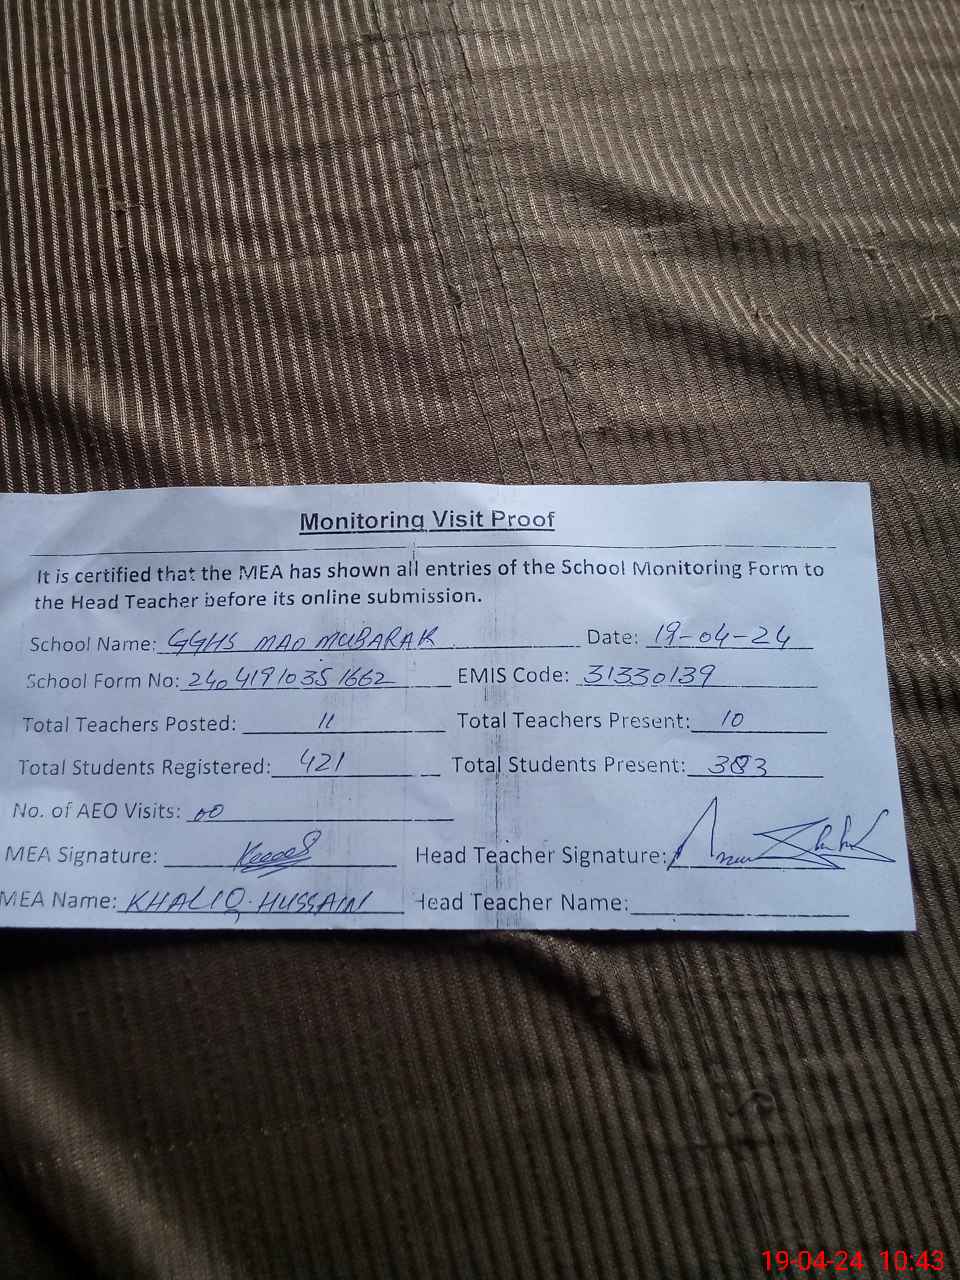 Monitoring Visit Proof
It is certified that the MEA has shown all entries of the School Monitoring Form to
the Head Teacher before its online submission.
School Name: GGHS MAO MUBARAK Date: 19-04-24
School Form No: 2404191035 1662 EMIS Code: 31330139
Total Teachers Posted: 11 Total Teachers Present: 10
Total Students Registered: 421 Total Students Present: 383
No. of AEO Visits: 00
MEA Signature: Head Teacher Signature:
MEA Name: KHALIQ HUSSAIN Head Teacher Name:
19-04-24 10:43